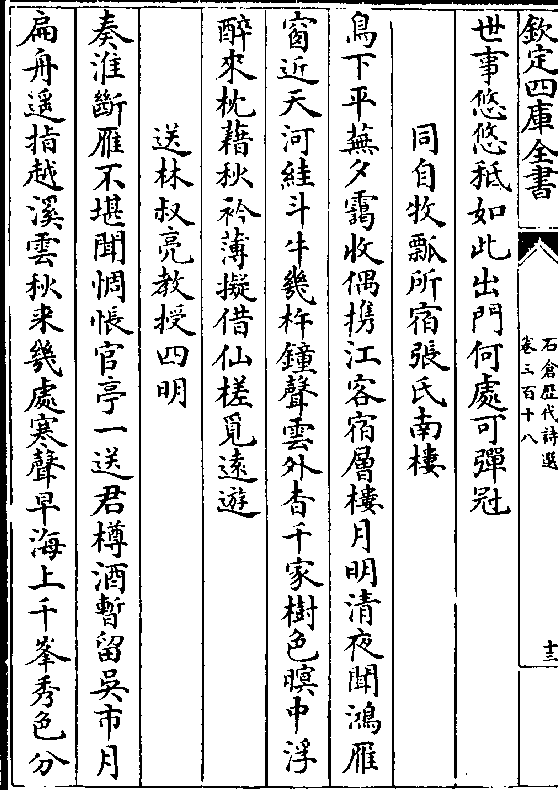 欽定四庫全書
石倉歷代詩選
卷三百十八
十三
世事悠悠秪如此出門何處可彈冠
同自牧瓢所宿張氏南樓
鳥下平蕪夕靄收偶携江客宿層樓月明清夜聞鴻雁
窗近天河絓斗牛幾杵鐘聲雲外杳千家樹色暝中浮
醉來枕藉秋衿薄擬借仙槎覓遠遊
送林叔亮教授四明
奏淮斷雁不堪聞惆悵官亭一送君樽酒暫留吳市月
扁舟遥指越溪雲秋来幾處寒聲早海上千峯秀色分